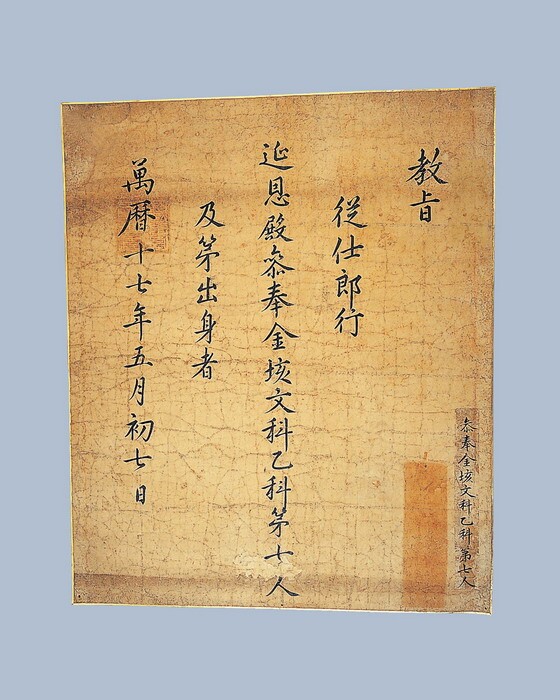 叅奉金垓文科乙科第七人
教旨
從仕郎行
延恩殿叅奉金垓文科乙科第十人
及第出身者
萬暦十七年五月初七日